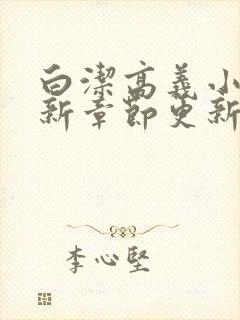 白潔高義小
新章節更新
李心堅